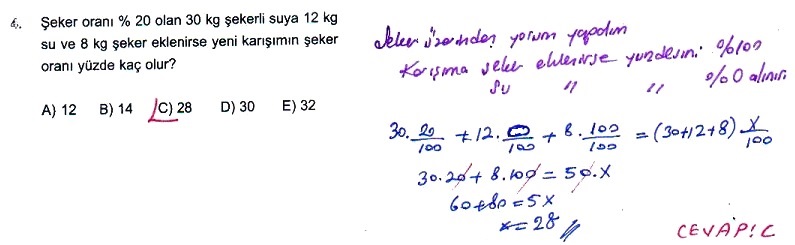 6. Şeker oranı % 20 olan 30 kg şekerli suya 12 kg
su ve 8 kg şeker eklenirse yeni karışımın şeker
oranı yüzde kaç olur?
A) 12 B) 14 C) 28 D) 30 E) 32
Şeker üzerinden yorum yapalım
Karışıma şeker eklenirse yüzdesini %100
su " " %0 alınır.
30. 20/100 + 12. 0/100 + 8. 100/100 = (30+12+8) x/100
30.20 + 8.100 = 50.x
60+80 = 5x
x = 28 //
CEVAP: C